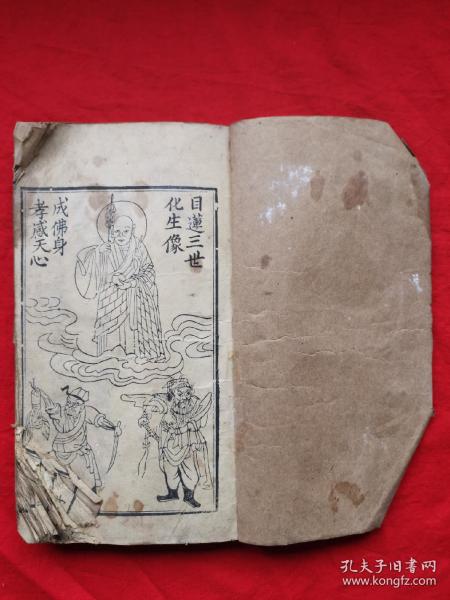 目蓮三世
化生像
成佛身
孝感天心
孔夫子旧书网
www.kongfz.com